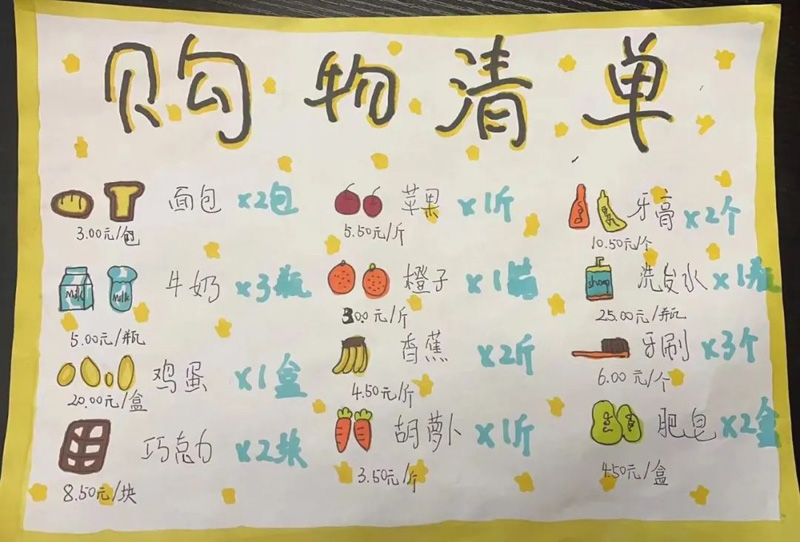 购物清单
面包 ×2包
3.00元/包
苹果 ×1斤
5.50元/斤
牙膏 ×2个
10.50元/个
牛奶 ×3瓶
milk Milk
5.00元/瓶
橙子 ×1
3.00元/斤
洗发水 ×1瓶
25.00元/瓶
鸡蛋 ×1盒
20.00元/盒
香蕉 ×2斤
4.50元/斤
牙刷 ×3个
6.00元/个
巧克力 ×2块
8.50元/块
胡萝卜 ×1斤
3.50元/斤
肥皂 ×2盒
4.50元/盒